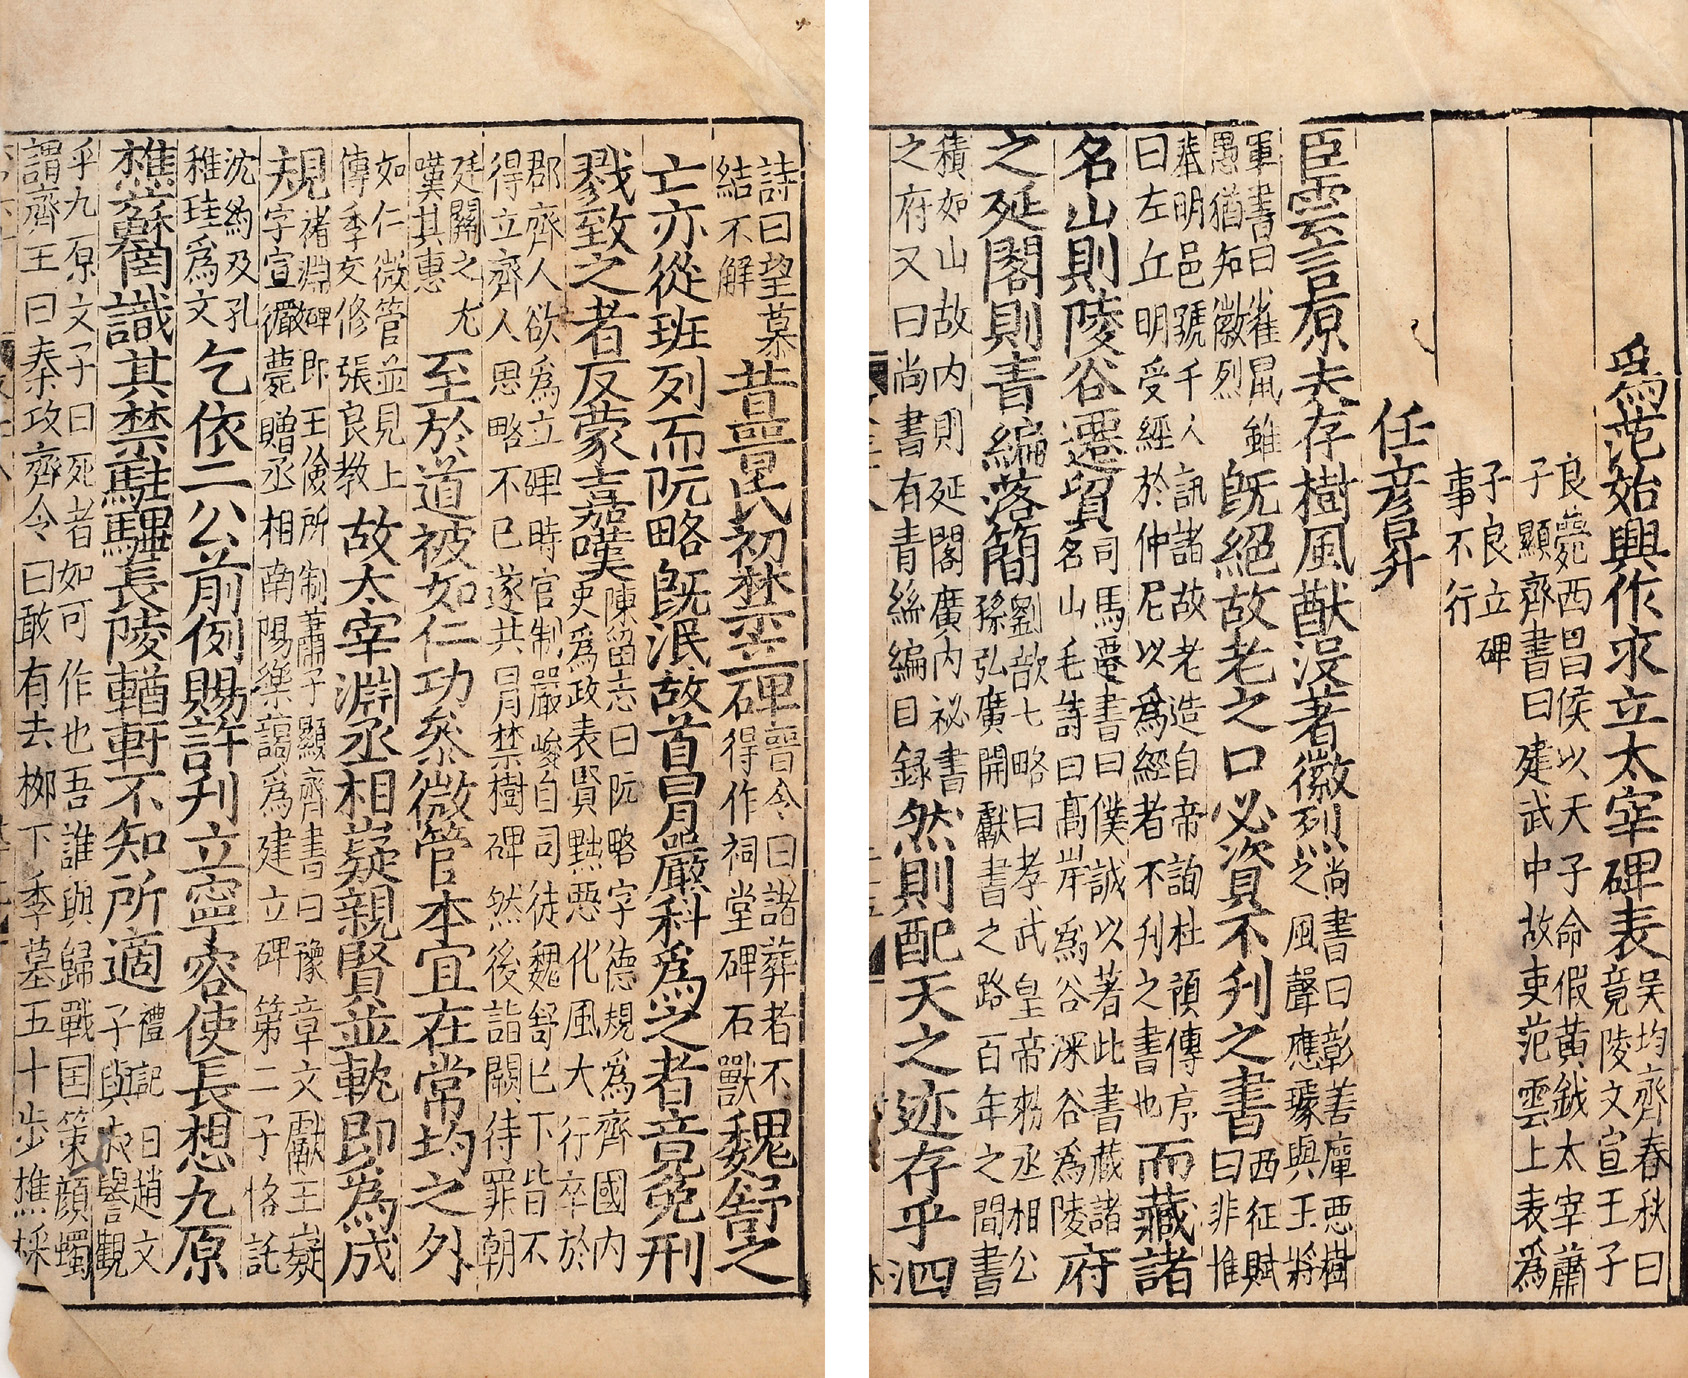 爲范始興作求立太宰碑表吳均齊春秋曰竟陵文宣王子
良薨西昌侯以天子命假黃鉞太宰蕭子顯齊書曰建武中故吏范雲上表爲
子良立碑事不行
任彥昇
臣雲言原夫存樹風猷沒著徽烈尚書曰彰善癉惡樹之風聲應璩與王將
軍書曰雀鼠雖愚猶知徽烈既絕故老之口必資不刊之書西征賦曰非惟
奉明邑號千人訊諸故老造自帝詢杜預傳序曰左丘明受經於仲尼以爲經者不刊之書也而藏諸
名山則陵谷遷貿司馬遷書曰僕誠以著此書藏諸名山毛詩曰高岸爲谷深谷爲陵府
之延閣則青編落簡劉歆七略曰孝武皇帝勑丞相公孫弘廣開獻書之路百年之間書
積如山故内則延閣廣内祕書之府又曰尚書有青絲編目録然則配天之迹存乎泗
詩曰望慕結不解昔晉氏初禁立碑晉令曰諸葬者不得作祠堂碑石獸魏舒之
亡亦從班列而阮略既泯故首冒嚴科爲之者竟免刑
戮致之者反蒙嘉嘆陳留志曰阮略字德規爲齊國内史爲政表賢黜惡化風大行卒於
郡齊人欲爲立碑時官制嚴峻自司徒魏舒已下皆不得立齊人思略不已遂共冒禁樹碑然後詣闕待罪朝
廷聞之尤嘆其惠至於道被如仁功參微管本宜在常均之外
如仁微管並見上傳季友修張良教故太宰淵丞相嶷親賢並軌即爲成
規褚淵碑即王儉所制蕭子顯齊書曰豫章文獻王嶷字宣儼薨贈丞相南陽樂藹爲建立碑第二子恪託
沈約及孔稚珪爲文乞依二公前例賜許刊立寧容使長想九原
樵蘇罔識其禁駐驆長陵輶軒不知所適禮記曰趙文子與叔譽觀
乎九原文子曰死者如可作也吾誰與歸戰国策顏斶謂齊王曰秦攻齊令曰敢有去柳下季墓五十步樵採